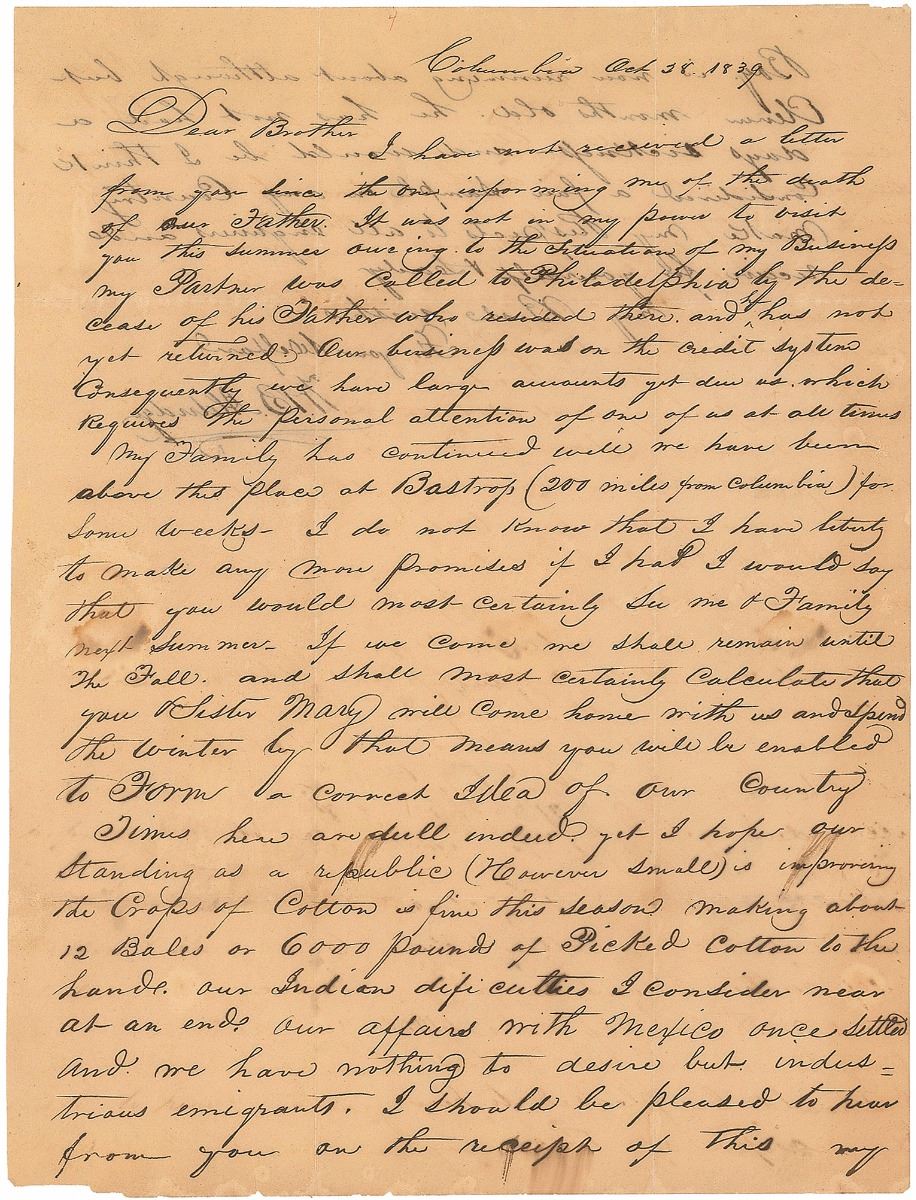 Columbia Oct 28. 1839
Dear Brother
I have not received a letter
from you since the one informing me of the death
of our Father. It was not in my power to visit
you this summer oweing to the situation of my Business
my Partner was Called to Philadelphia by the de-
cease of his Father who resided there. and has not
yet returned. Our business was on the credit system
Consequently we have large amounts yet due us. which
requires the personal attention of one of us at all times
My Family has continued well we have been
above this place at Bastrop (200 miles from Columbia) for
some weeks- I do not know that I have liberty
to make any more promises if I had I would say
that you would most certainly see me & Family
next summer- If we come we shall remain until
the Fall. and shall most certainly calculate that
you & Sister Mary will come home with us and spend
the winter by that means you will be enabled
to Form a correct Idea of our Country
Times here are dull indeed. yet I hope our
standing as a republic (However small) is improving
the Crops of Cotton is fine this season making about
12 Bales or 6000 pounds of Picked Cotton to the
hand. our Indian dificulties I consider near
at an end. our affairs with Mexico once settled
and we have nothing to desire but indus=
trious emigrants. I should be pleased to hear
from you on the receipt of this my